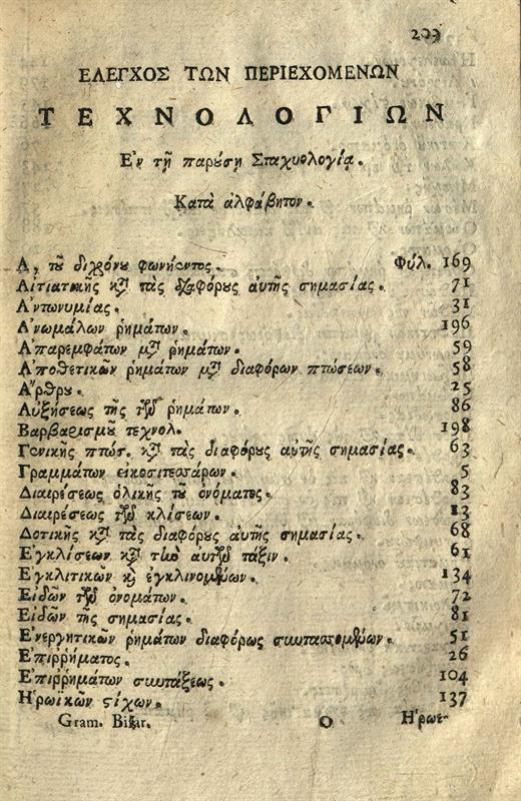 209
ΕΛΕΓΧΟΣ ΤΩΝ ΠΕΡΙΕΧΟΜΕΝΩΝ
ΤΕΧΝΟΛΟΓΙΩΝ
Ἐν τῇ παρούσῃ Σταχυολογίᾳ.
Κατὰ ἀλφάβητον.
Α, τοῦ διχρόνου φωνήεντος. Φύλ. 169
Αἰτιατικῆς κατὰ τὰς διαφόρους αὐτῆς σημασίας. 71
Ἀντωνυμίας. 31
Ἀνωμάλων ῥημάτων. 196
Ἀπαρεμφάτων μετὰ ῥημάτων. 59
Ἀποθετικῶν ῥημάτων μετὰ διαφόρων πτώσεων. 58
Ἄρθρου. 25
Αὐξήσεως τῆς τῶν ῥημάτων. 86
Βαρβαρισμοῦ τεχνολ. 198
Γενικῆς πτώσ. κατὰ τὰς διαφόρους αὐτῆς σημασίας. 63
Γραμμάτων εἰκοσιτεσσάρων. 5
Διαιρέσεως ὁλικῆς τοῦ ὀνόματος. 83
Διαιρέσεως τῶν κλίσεων. 13
Δοτικῆς κατὰ τὰς διαφόρους αὐτῆς σημασίας. 68
Ἐγκλίσεων κατὰ τὴν αὐτῶν τάξιν. 61
Ἐγκλιτικῶν καὶ ἐγκλινομένων. 134
Εἰδῶν τῶν ὀνομάτων. 72
Εἰδῶν τῆς σημασίας. 81
Ἐνεργητικῶν ῥημάτων διαφόρως συντασσομένων. 51
Ἐπιρρήματος. 26
Ἐπιῤῥημάτων συντάξεως. 104
Ἡρωϊκῶν στίχων. 137
Gram. Bisar. O Ἡρωε-